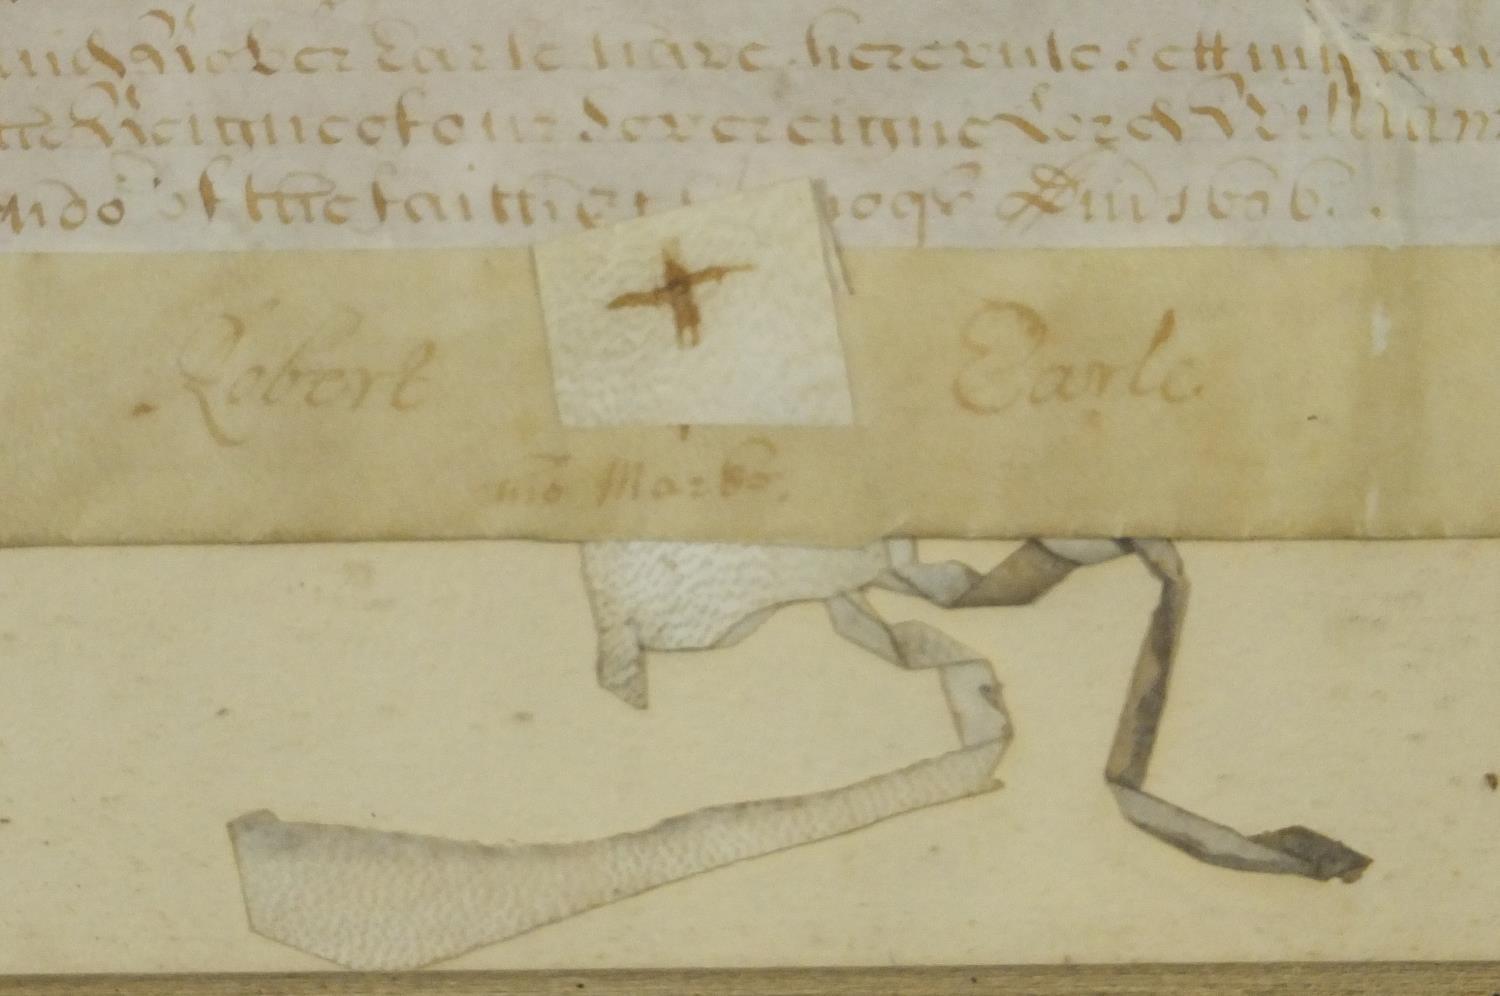 said Robert Earle have hereunto sett
the Reigne of our Sovereigne Lord William
of the faith &c Annoqe Dm̄ 1696.
Robert Earle
his Marke.